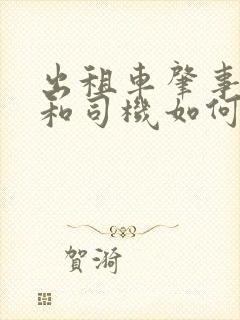 出租車肇事
和司機如何
賀漪